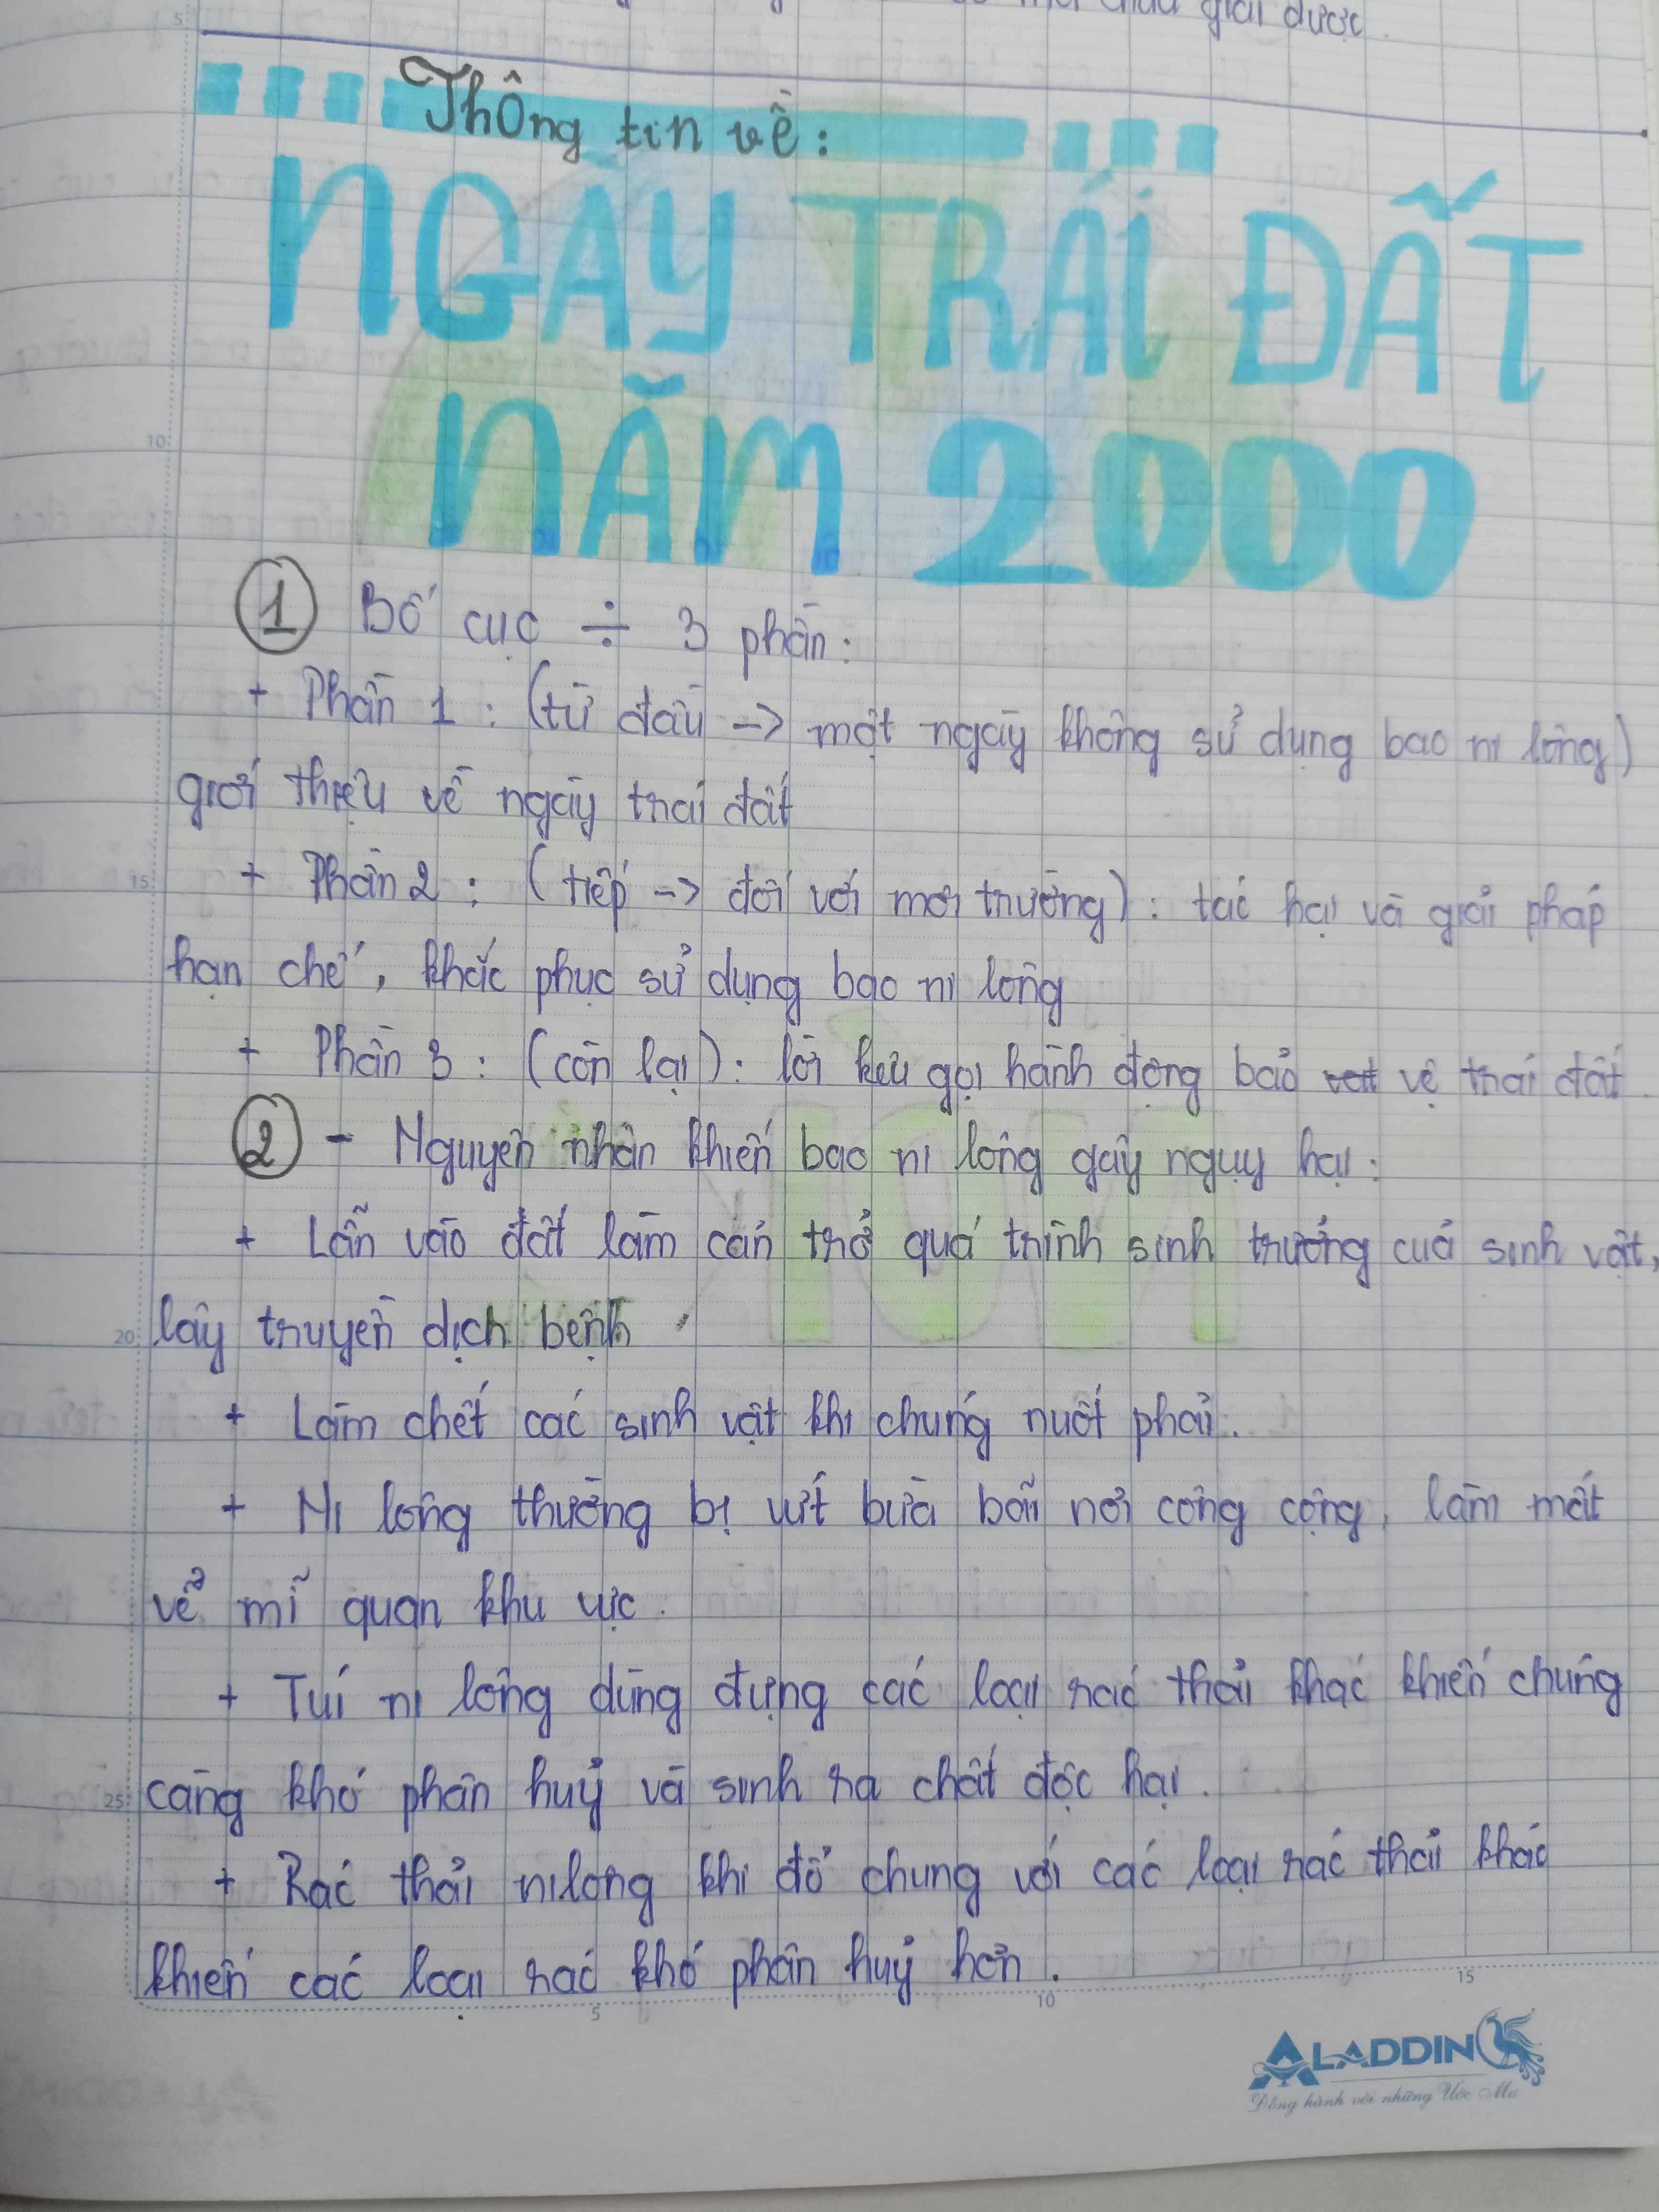 giải được.
Thông tin về:
NGÀY TRÁI ĐẤT
NĂM 2000
① Bố cục ÷ 3 phần:
+ Phần 1 : (từ đầu -> một ngày không sử dụng bao ni lông)
giới thiệu về ngày trái đất
+ Phần 2 : (tiếp -> đối với môi trường) : tác hại và giải pháp
hạn chế, khắc phục sử dụng bao ni lông
+ Phần 3 : (còn lại) : lời kêu gọi hành động bảo vệ trái đất.
② - Nguyên nhân khiến bao ni lông gây nguy hại :
+ Lẫn vào đất làm cản trở quá trình sinh trưởng của sinh vật,
lây truyền dịch bệnh
+ Làm chết các sinh vật khi chúng nuốt phải.
+ Ni lông thường bị vứt bừa bãi nơi công cộng, làm mất
vẻ mĩ quan khu vực.
+ Túi ni lông dùng đựng các loại rác thải khác khiến chúng
càng khó phân huỷ và sinh ra chất độc hại.
+ Rác thải nilông khi đổ chung với các loại rác thải khác
khiến các loại rác khó phân huỷ hơn.
5
10
15
20
25
5
10
15
ALADDIN
Đồng hành với những Ước Mơ